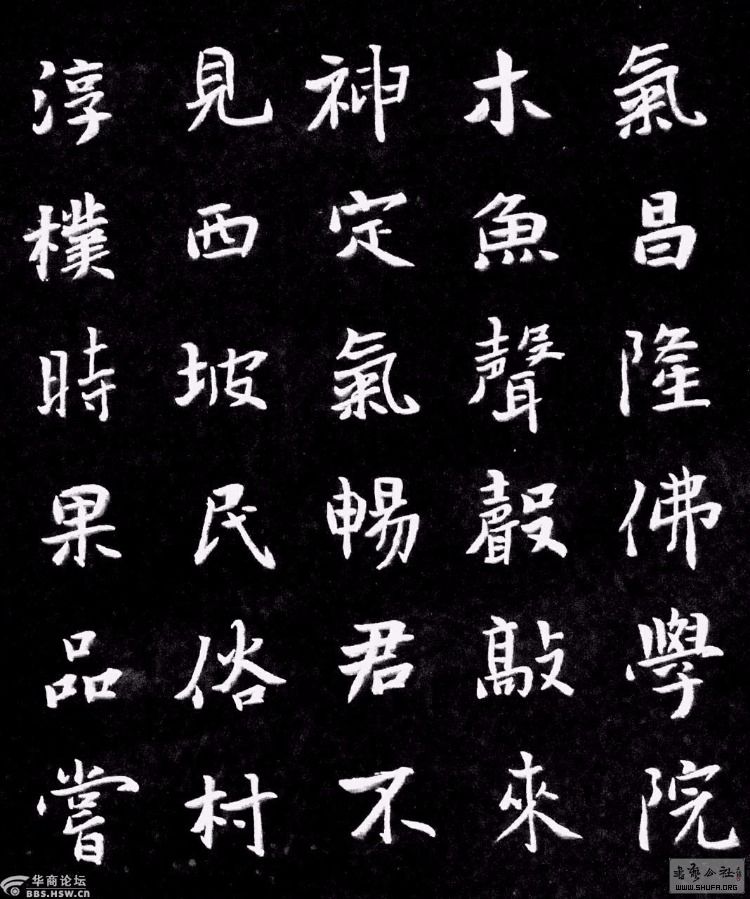 氣昌隆佛學院
木魚聲聲敲來
神定氣暢君不
見西坡民俗村
淳樸時果品嘗
华商论坛
BBS.HSW.CN
WWW.SHUFA.ORG